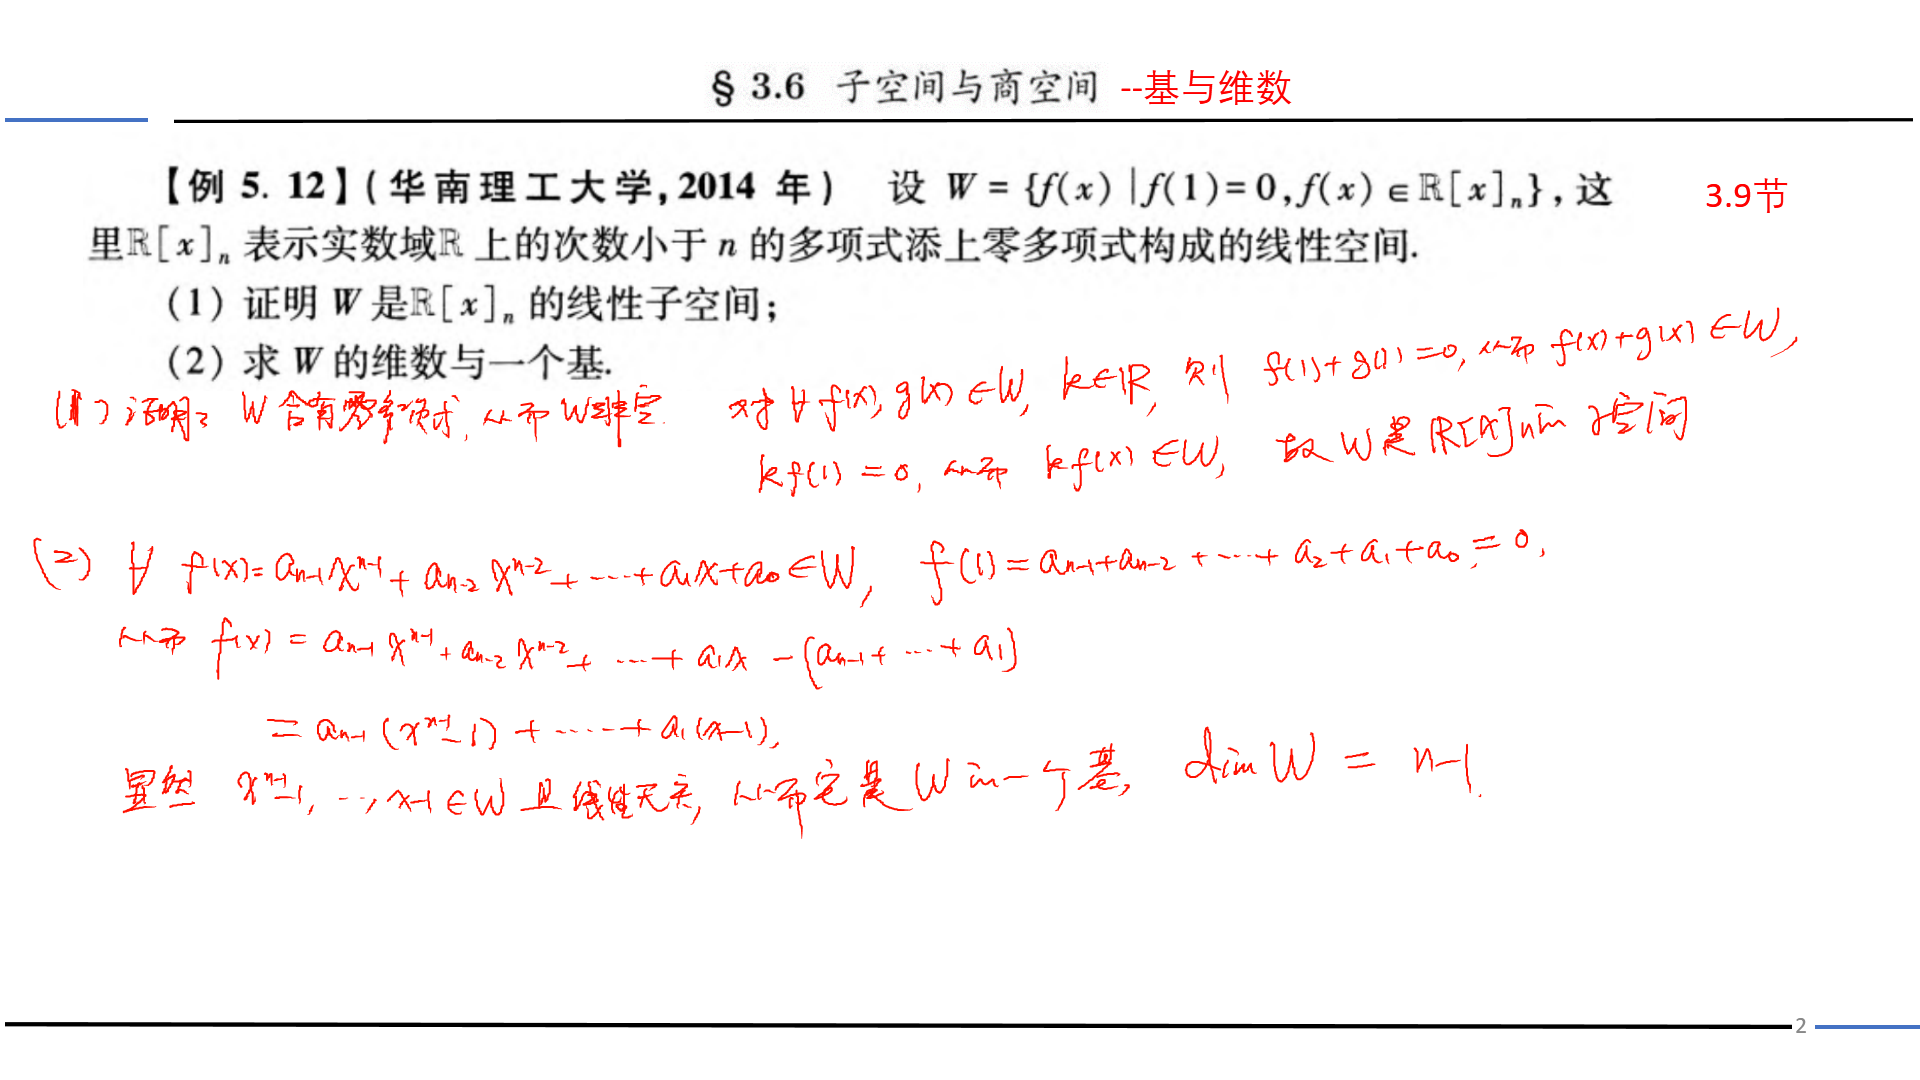 § 3.6 子空间与商空间 --基与维数
【例 5. 12】(华南理工大学,2014 年) 设 W = {f(x) | f(1) = 0, f(x) ∈ ℝ[x]ₙ}, 这
3.9节
里ℝ[x]ₙ 表示实数域ℝ 上的次数小于 n 的多项式添上零多项式构成的线性空间.
(1) 证明 W 是ℝ[x]ₙ 的线性子空间;
(2) 求 W 的维数与一个基.
(1) 证明: W 含有零多项式, 从而 W 非空. 对 ∀ f(x), g(x) ∈ W, k ∈ ℝ, 则 f(1)+g(1) = 0, 从而 f(x)+g(x) ∈ W,
kf(1) = 0, 从而 kf(x) ∈ W, 故 W 是 ℝ[x]n 的子空间
(2) ∀ f(x) = aₙ₋₁xⁿ⁻¹ + aₙ₋₂xⁿ⁻² + ⋯ + a₁x + a₀ ∈ W, f(1) = aₙ₋₁ + aₙ₋₂ + ⋯ + a₂ + a₁ + a₀ = 0,
从而 f(x) = aₙ₋₁xⁿ⁻¹ + aₙ₋₂xⁿ⁻² + ⋯ + a₁x − (aₙ₋₁ + ⋯ + a₁)
= aₙ₋₁(xⁿ⁻¹ − 1) + ⋯⋯ + a₁(x−1),
显然 xⁿ⁻¹−1, ⋯, x−1 ∈ W 且线性无关, 从而它是 W 的一个基, dim W = n−1.
2